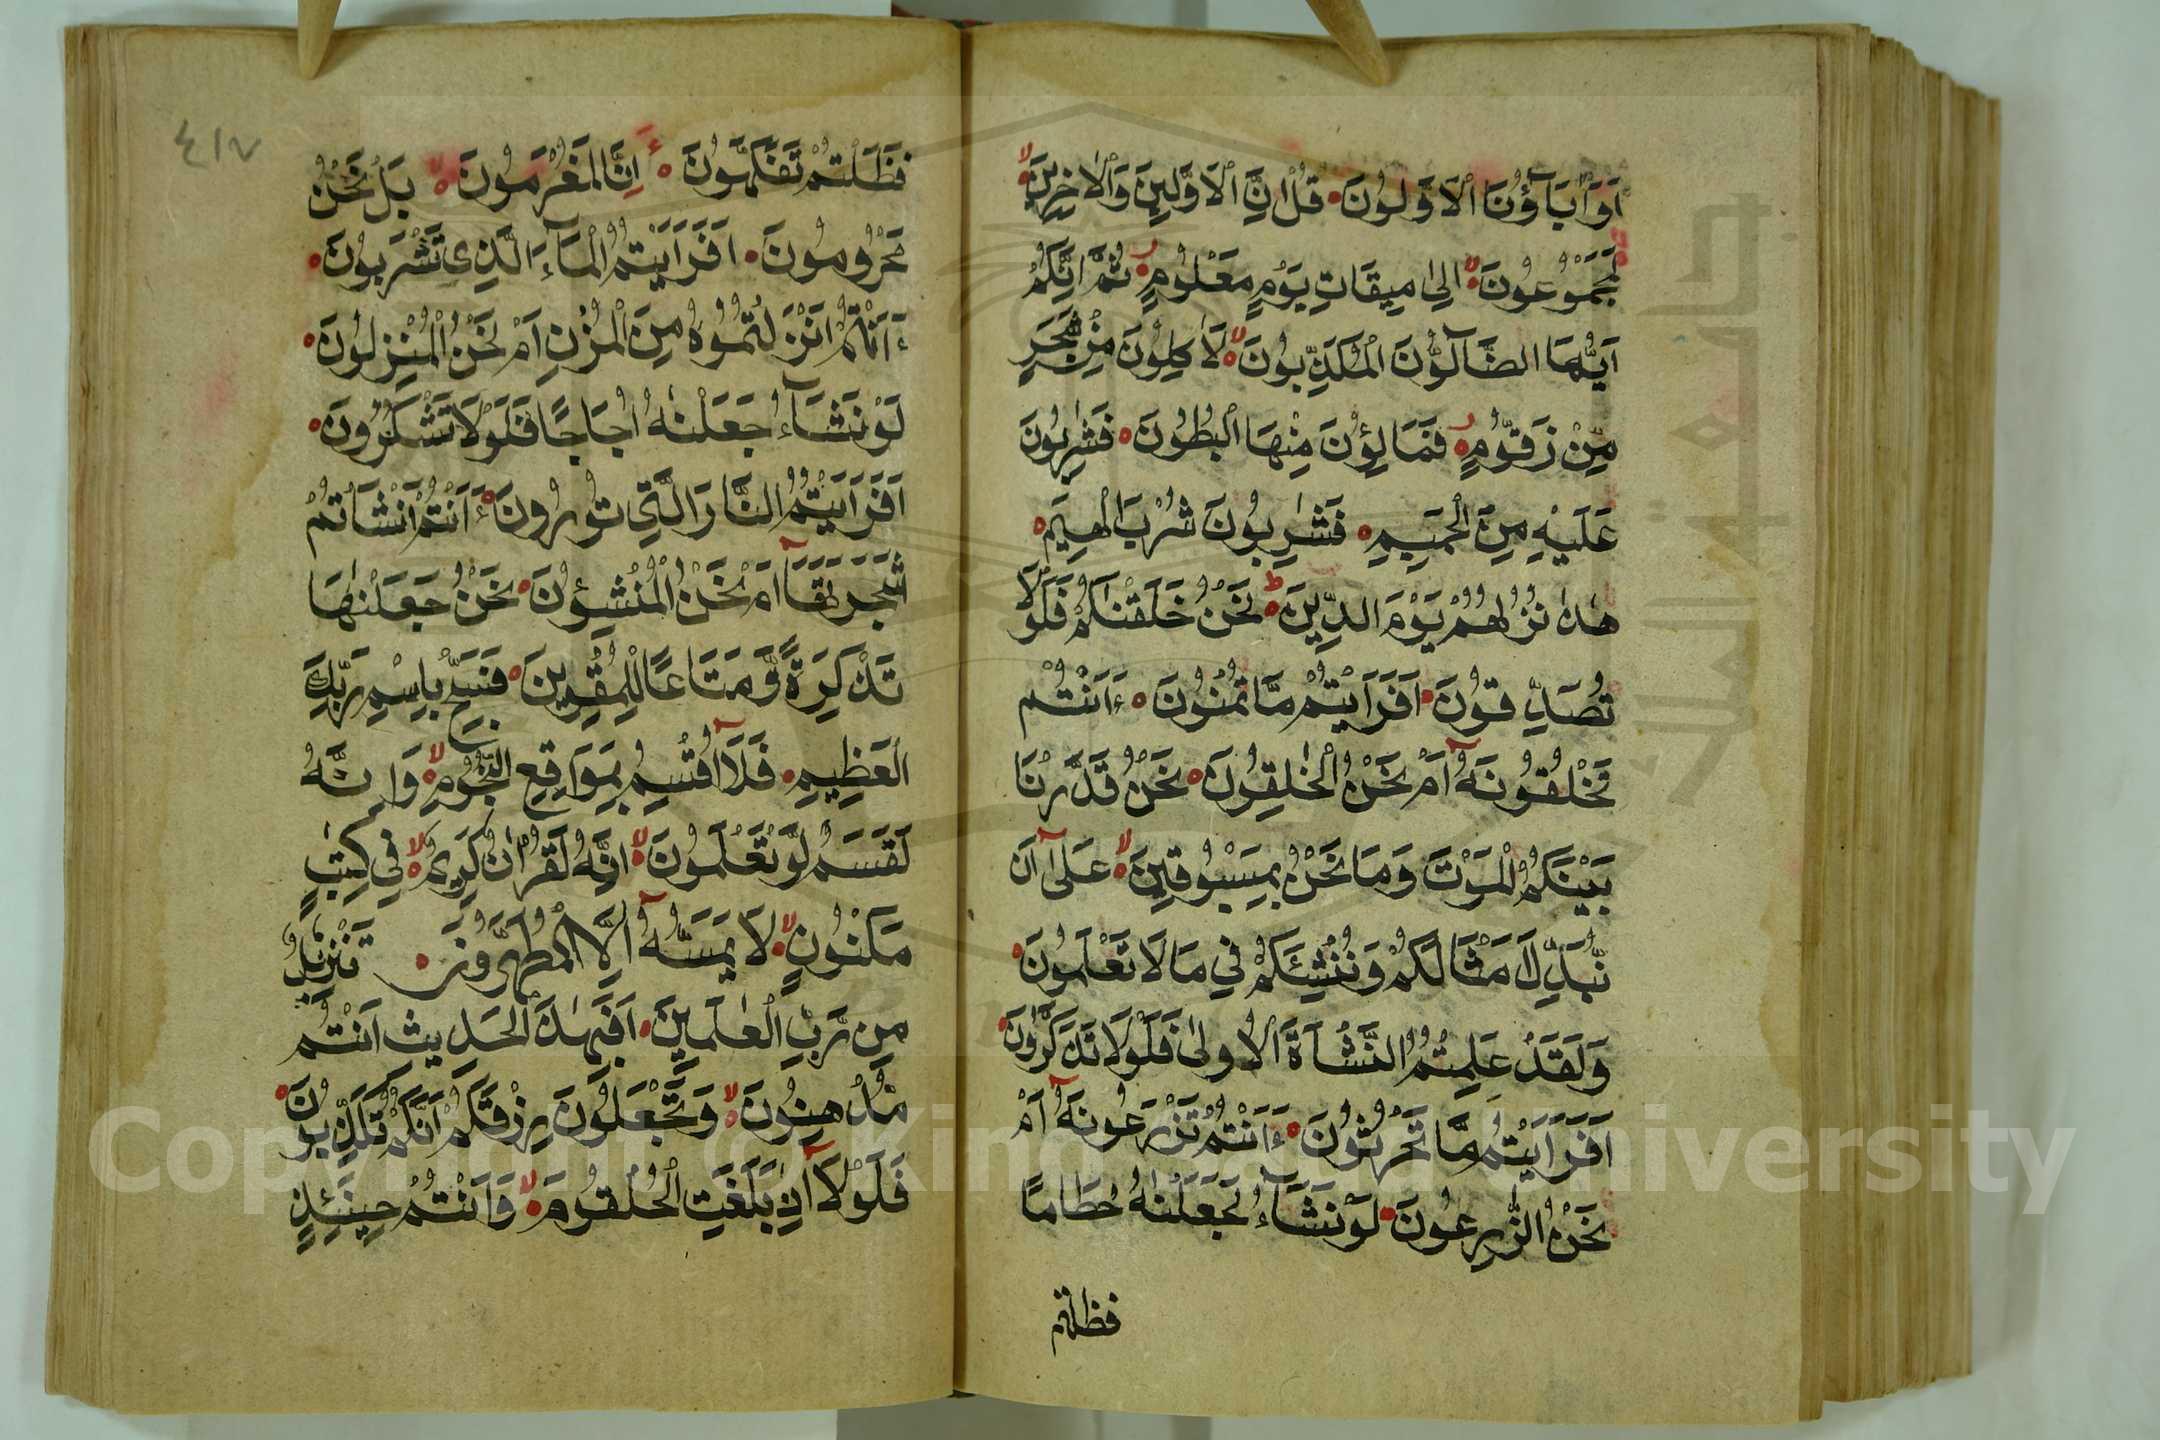 اَوَاٰبَآؤُنَا الْاَوَّلُونَ قُلْ اِنَّ الْاَوَّلِينَ وَالْاٰخِرِينَ
لَمَجْمُوعُونَ اِلٰى مِيقَاتِ يَوْمٍ مَعْلُومٍ ثُمَّ اِنَّكُمْ
اَيُّهَا الضَّآلُّونَ الْمُكَذِّبُونَ لَاٰكِلُونَ مِنْ شَجَرٍ
مِنْ زَقُّومٍ فَمَالِؤُنَ مِنْهَا الْبُطُونَ فَشٰرِبُونَ
عَلَيْهِ مِنَ الْحَمِيمِ فَشٰرِبُونَ شُرْبَ الْهِيمِ
هٰذَا نُزُلُهُمْ يَوْمَ الدِّينِ نَحْنُ خَلَقْنَاكُمْ فَلَوْلَا
تُصَدِّقُونَ اَفَرَاَيْتُمْ مَّا تُمْنُونَ ءَاَنْتُمْ
تَخْلُقُونَهُ اَمْ نَحْنُ الْخٰلِقُونَ نَحْنُ قَدَّرْنَا
بَيْنَكُمُ الْمَوْتَ وَمَا نَحْنُ بِمَسْبُوقِينَ عَلٰى اَنْ
نُبَدِّلَ اَمْثَالَكُمْ وَنُنْشِئَكُمْ فِي مَا لَا تَعْلَمُونَ
وَلَقَدْ عَلِمْتُمُ النَّشْاَةَ الْاُولٰى فَلَوْلَا تَذَكَّرُونَ
اَفَرَاَيْتُمْ مَّا تَحْرُثُونَ ءَاَنْتُمْ تَزْرَعُونَهُ اَمْ
نَحْنُ الزّٰرِعُونَ لَوْ نَشَآءُ لَجَعَلْنٰهُ حُطَامًا
فظلتم
٤١٧
فَظَلْتُمْ تَفَكَّهُونَ اِنَّا لَمُغْرَمُونَ بَلْ نَحْنُ
مَحْرُومُونَ اَفَرَاَيْتُمُ الْمَآءَ الَّذِي تَشْرَبُونَ
ءَاَنْتُمْ اَنْزَلْتُمُوهُ مِنَ الْمُزْنِ اَمْ نَحْنُ الْمُنْزِلُونَ
لَوْ نَشَآءُ جَعَلْنٰهُ اُجَاجًا فَلَوْلَا تَشْكُرُونَ
اَفَرَاَيْتُمُ النَّارَ الَّتِي تُورُونَ ءَاَنْتُمْ اَنْشَاْتُمْ
شَجَرَتَهَا اَمْ نَحْنُ الْمُنْشِؤُنَ نَحْنُ جَعَلْنٰهَا
تَذْكِرَةً وَّمَتَاعًا لِلْمُقْوِينَ فَسَبِّحْ بِاسْمِ رَبِّكَ
الْعَظِيمِ فَلَا اُقْسِمُ بِمَوَاقِعِ النُّجُومِ وَاِنَّهُ
لَقَسَمٌ لَّوْ تَعْلَمُونَ اِنَّهُ لَقُرْاٰنٌ كَرِيمٌ فِي كِتٰبٍ
مَكْنُونٍ لَا يَمَسُّهُ اِلَّا الْمُطَهَّرُونَ تَنْزِيلٌ
مِن رَّبِّ الْعٰلَمِينَ اَفَبِهٰذَا الْحَدِيثِ اَنْتُمْ
مُدْهِنُونَ وَتَجْعَلُونَ رِزْقَكُمْ اَنَّكُمْ تُكَذِّبُونَ
فَلَوْلَا اِذَا بَلَغَتِ الْحُلْقُومَ وَاَنْتُمْ حِينَئِذٍ
Copyright © King Saud University